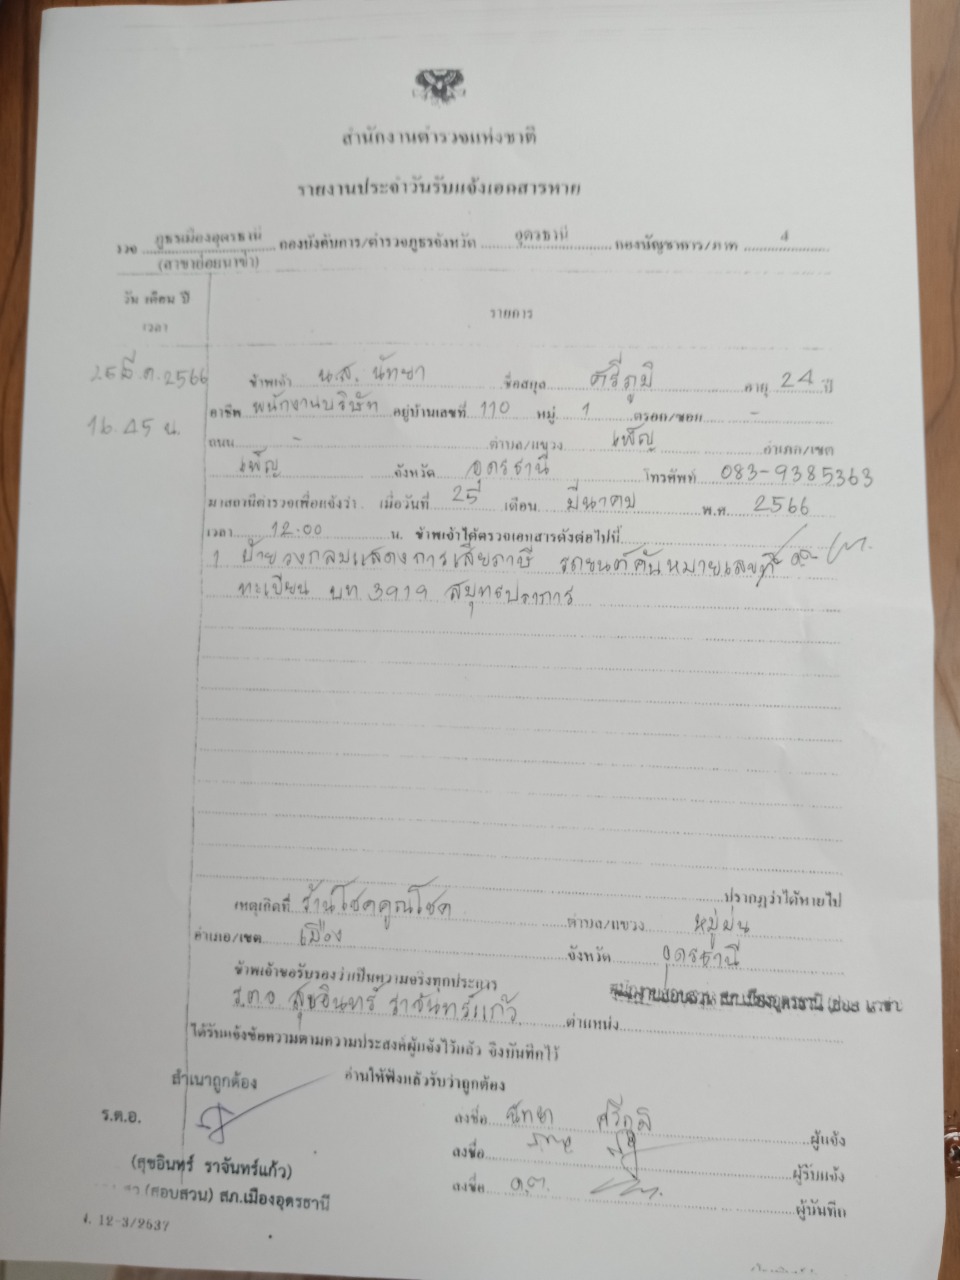 สำนักงานตำรวจแห่งชาติ
รายงานประจำวันรับแจ้งเอกสารหาย
ภูธรเมืองอุดรธานี กองบังคับการ/ตำรวจภูธรจังหวัด อุดรธานี กองบัญชาการ/ภาค 4
(สาขาย่อยนาข่า)
วัน เดือน ปี
เวลา
รายการ
25 มี.ค. 2566
ข้าพเจ้า น.ส. นัทชา ชื่อสกุล ศรีภูมิ อายุ 24 ปี
16.45 น.
อาชีพ พนักงานบริษัท อยู่บ้านเลขที่ 110 หมู่ 1 ตรอก/ซอย -
ถนน - ตำบล/แขวง เพ็ญ อำเภอ/เขต
เพ็ญ จังหวัด อุดรธานี โทรศัพท์ 083-9385363
มาสถานีตำรวจเพื่อแจ้งว่า เมื่อวันที่ 25 เดือน มีนาคม พ.ศ. 2566
เวลา 12.00 น. ข้าพเจ้าได้ตรวจเอกสารดังต่อไปนี้
1 ป้ายวงกลมแสดงการเสียภาษี รถยนต์คันหมายเลข
ทะเบียน บท 3919 สมุทรปราการ
ปรากฏว่าได้หายไป
เหตุเกิดที่ ร้านโชคคูณโชค ตำบล/แขวง หมู่ม่น
อำเภอ/เขต เมือง จังหวัด อุดรธานี
ข้าพเจ้าขอรับรองว่าเป็นความจริงทุกประการ
ร.ต.อ สุขอินทร์ ราจันทร์แก้ว ตำแหน่ง พนักงานสอบสวน สภ.เมืองอุดรธานี
ได้รับแจ้งข้อความตามความประสงค์ผู้แจ้งไว้แล้ว จึงบันทึกไว้
อ่านให้ฟังแล้วรับว่าถูกต้อง
สำเนาถูกต้อง
ร.ต.อ.
ลงชื่อ นัทชา ศรีภูมิ ผู้แจ้ง
ลงชื่อ ผู้รับแจ้ง
(สุขอินทร์ ราจันทร์แก้ว)
ลงชื่อ ผู้บันทึก
(สอบสวน) สภ.เมืองอุดรธานี
ง. 12-3/2537